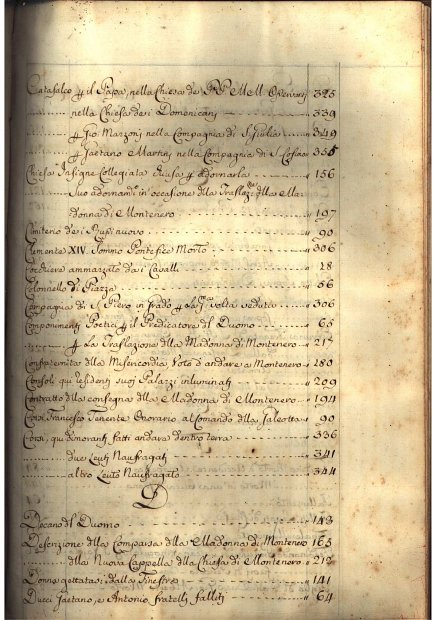 Catafalco p il Papa, nella Chiesa de PP. M. M. Osservanti 325
nella Chiesa dei Domenicani 339
p Gio: Marzoni nella Compagnia di S. Giulia 349
p Gaetano Martini nella Compagnia di S. 355
Chiesa Insigne Collegiata chiusa p adornarla 156
Suo adornam.to in occasione dlla Traslaz.e dlla Ma-
donna di Montenero 197
Cimiterio dei nuovo 90
Clemente XIV. Sommo Pontefice Morto 306
ammazzato dai Cavalli 28
Colonnello di Piazza 56
Compagnia di S. Piero in p la volta veduta 306
Componimenti Poetici p il Predicatore dl Duomo 65
p La Traslazione dlla Madonna di Montenero 217
Confraternita dlla Misericordia Voto d'andare a Montenero 280
Consoli qui residenti suoi Palazzi inluminati 209
Contratto dlla consegna dlla Madonna di Montenero 194
Francesco Tenente Onorario, al comando dlla Galeotta 90
Corsi, qui dimoranti fatti andare dentro terra 336
due Leuti Naufragati 341
altro Leuto Naufragato 344
D
Decano dl Duomo 143
Descrizione dlla Comparsa dlla Madonna di Montenero 165
dlla Nuova Cappella dlla Chiesa di Montenero 212
Donna gettatasi dalla Finestra 141
Ducci Gaetano, e Antonio fratelli falliti 64